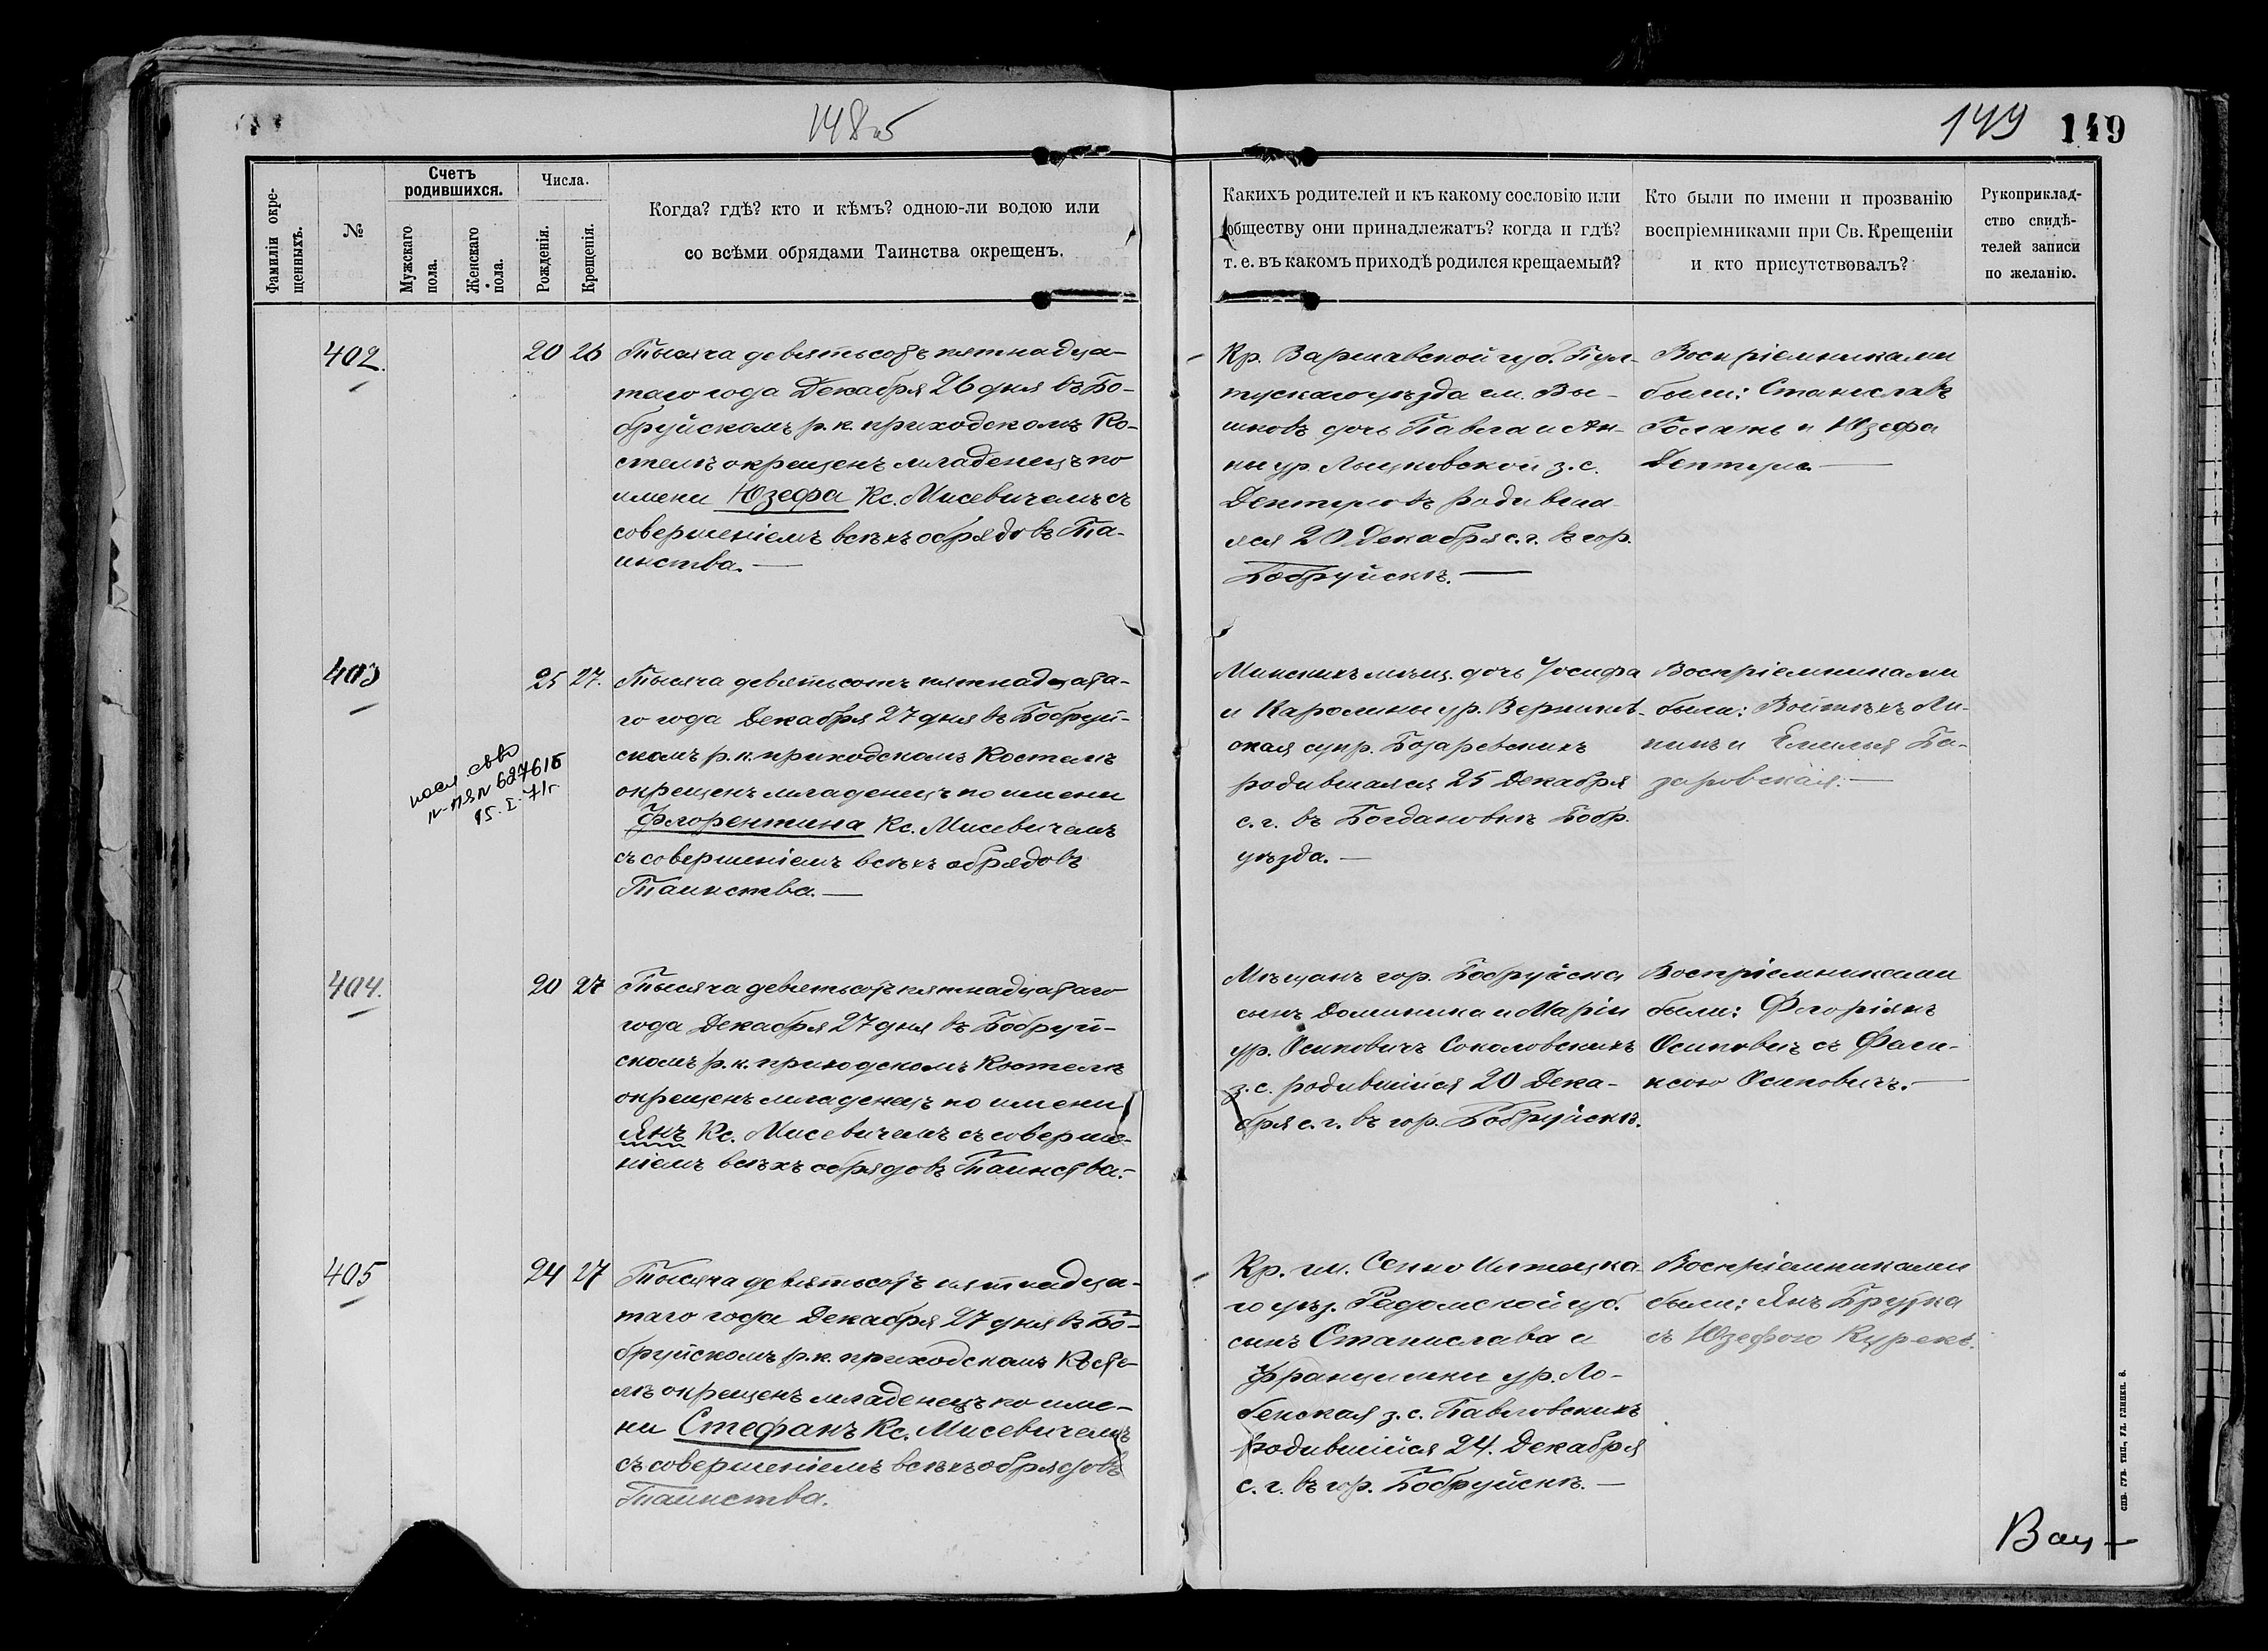 148об
149 149
Фамиліи окре-
щенныхъ.
№
Счетъ
родившихся.
Мужскаго
пола.
Женскаго
пола.
Числа.
Рожденія.
Крещенія.
Когда? гдѣ? кто и кѣмъ? одною-ли водою или
со всѣми обрядами Таинства окрещенъ.
Какихъ родителей и къ какому сословію или
обществу они принадлежатъ? когда и гдѣ?
т. е. въ какомъ приходѣ родился крещаемый?
Кто были по имени и прозванію
воспріемниками при Св. Крещеніи
и кто присутствовалъ?
Рукоприклад-
ство свидѣ-
телей записи
по желанію.
402.
20 26
Тысяча девятьсотъ пятнадца-
таго года Декабря 26 дня въ Бо-
бруйскомъ р. к. приходскомъ Ко-
стелѣ окрещенъ младенецъ по
имени Юзефа Кс. Мисевичемъ съ
совершеніемъ всѣхъ обрядовъ Та-
инства. —
Кр. Варшавской губ. Пул-
тускаго уѣзда гм. Вы-
шковъ дочь Павла и Ан-
ны ур. з. с.
родивша-
яся 20 Декабря с. г. въ гор.
Бобруйскѣ. —
Воспріемниками
были: Станиславъ
и Юзефа
403
25 27.
Тысяча девятьсотъ пятнадцата-
го года Декабря 27 дня въ Бобруй-
скомъ р. к. приходскомъ Костелѣ
окрещенъ младенецъ по имени
Флорентина Кс. Мисевичемъ
съ совершеніемъ всѣхъ обрядовъ
Таинства. —
№ 627616
15. I. 71г
Минскихъ мѣщ. дочь Іосифа
и Каролины ур.
супр.
родившаяся 25 Декабря
с. г. въ Богдановкѣ Бобр.
уѣзда. —
Воспріемниками
были:
и Емилья Ба-
заревская. —
404.
20 27
Тысяча девятьсотъ пятнадцатаго
года Декабря 27 дня въ Бобруй-
скомъ р. к. приходскомъ Костелѣ
окрещенъ младенецъ по имени
Янъ Кс. Мисевичемъ съ соверше-
ніемъ всѣхъ обрядовъ Таинства. –
Мѣщанъ гор. Бобруйска
сынъ Доминика и Маріи
ур. Осиповичъ Соколовскихъ
з. с. родившійся 20 Дека-
бря с. г. въ гор. Бобруйскѣ.
Воспріемниками
были: Флоріянъ
Осиповичъ съ
Осиповичъ. —
405
24 27
Тысяча девятьсотъ пятнадца-
таго года Декабря 27 дня въ Бо-
бруйскомъ р. к. приходскомъ Косте-
лѣ окрещенъ младенецъ по име-
ни Стефанъ Кс. Мисевичемъ
съ совершеніемъ всѣхъ обрядовъ
Таинства.
Кр. гм. Сенно Илжецка-
го уѣз. Радомской губ.
сынъ Станислава и
Францишки ур. Ло-
бенская з. с. Павловскихъ
родившійся 24. Декабря
с. г. въ гор. Бобруйскѣ. —
Воспріемниками
были: Янъ
съ Юзефою Курекъ.
СПБ. ГУБ. ТИП., УЛ. ГЛИНКИ. 6.